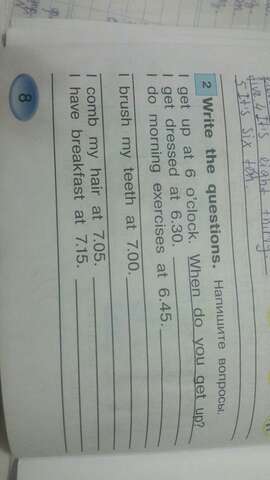 2 Write the questions. Напишите вопросы.
I get up at 6 o'clock. When do you get up?
I get dressed at 6.30.
I do morning exercises at 6.45.
I brush my teeth at 7.00.
I comb my hair at 7.05.
I have breakfast at 7.15.
8